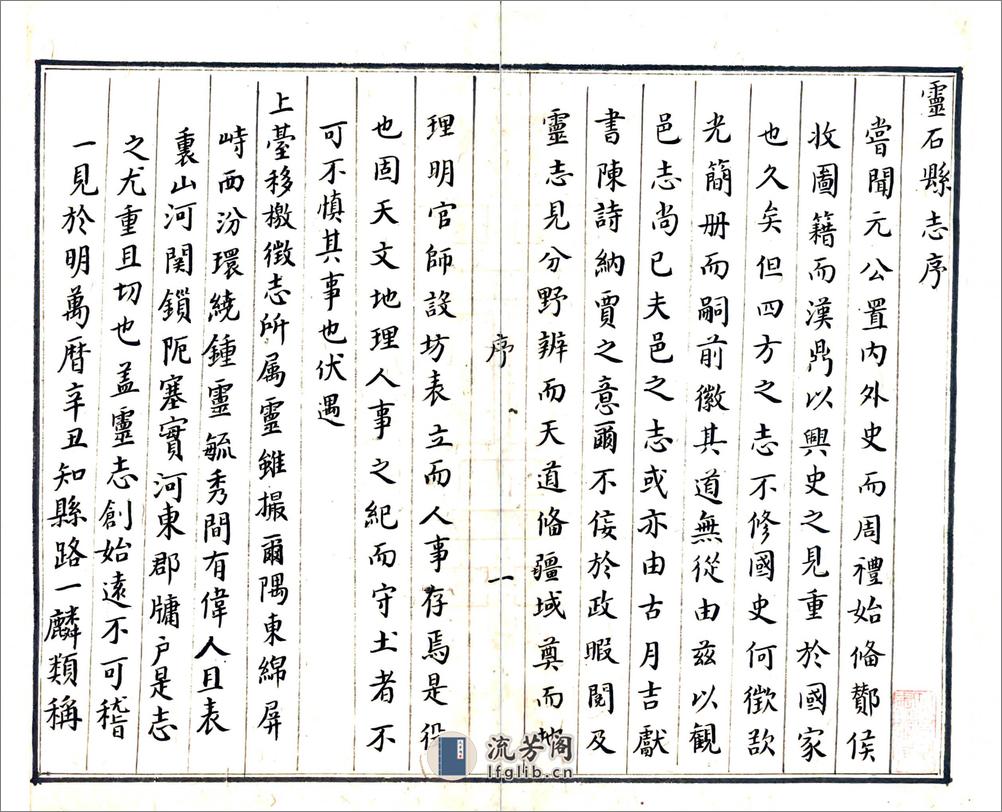 靈石縣志序
嘗聞元公置內外史而周禮始俻酇侯
收圖籍而漢鼎以興史之見重於國家
也久矣但四方之志不修國史何徵欿
光簡册而嗣前徽其道無從由兹以觀
邑志尚已夫邑之志或亦由古月吉獻
書陳詩納賈之意爾不侫於政暇閱及
靈志見分野辨而天道俻疆域奠而地
序
一
理明官師設坊表立而人事存焉是役
也固天文地理人事之紀而守土者不
可不慎其事也伏遇
上臺移檄徵志所属靈雖撮爾隅東綿屏
峙西汾環繞鍾靈毓秀間有偉人且表
裏山河関鎖阨塞實河東郡牗戶是志
之尤重且切也盖靈志創始遠不可稽
一見於明萬曆辛丑知縣路一麟類稱
流芳阁
lfglib.cn